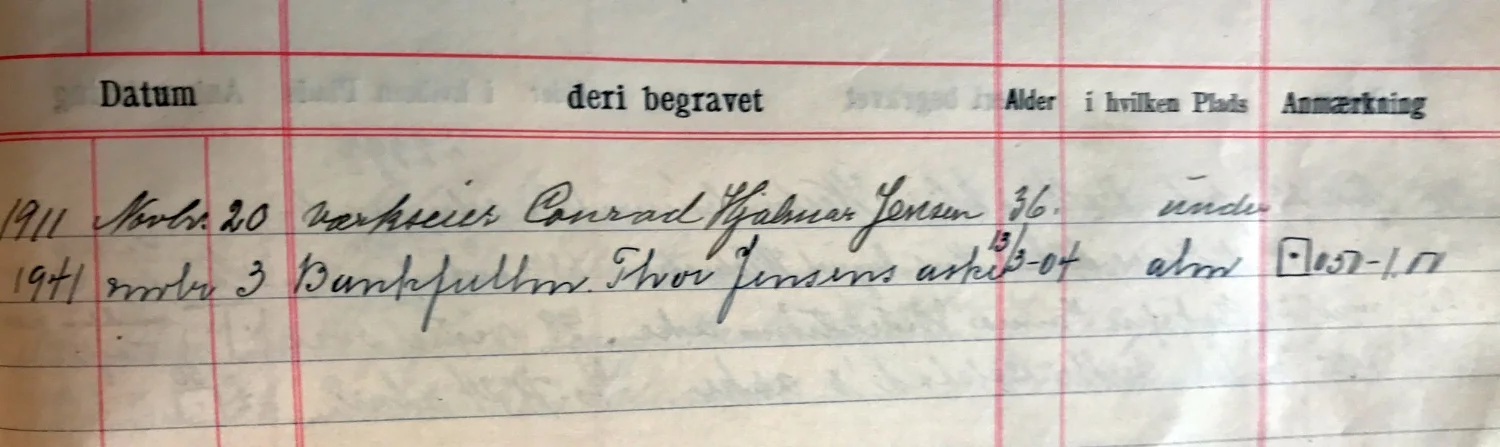 Datum deri begravet Alder i hvilken Plads Anmærkning
1911 Novbr. 20 Værkseier Conrad Hjalmar Jensen 36. under
1941 novbr 3 Bankfullm. Thor Jensens aske 13/3-04 alm